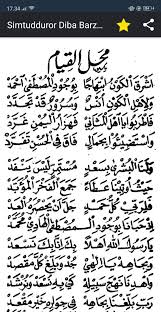 17.34
Simtudduror Diba Barz...
محل القيام
أَشْرَقَ الْكَوْنُ ابْتِهَاجًا بِوُجُودِ الْمُصْطَفَى أَحْمَدْ
وَلِأَهْلِ الْكَوْنِ أُنْسٌ وَسُرُورٌ قَدْ تَجَدَّدْ
فَاطْرَبُوا يَا أَهْلَ الْمَثَانِي فَهَزَارُ الْيُمْنِ غَرَّدْ
وَاسْتَضِيئُوا بِجَمَالٍ فَاقَ فِي الْحُسْنِ تَفَرَّدْ
وَلَنَا الْبُشْرَى بِسَعْدٍ مُسْتَمِرٍّ لَيْسَ يَنْفَدْ
حَيْثُ أُوتِينَا عَطَاءً جَمَعَ الْفَخْرَ الْمُؤَبَّدْ
فَلِرَبِّي كُلُّ حَمْدٍ جَلَّ أَنْ يَحْصُرَهُ الْعَدّ
إِذْ حَبَانَا بِوُجُودِ الْمُصْطَفَى الْهَادِي مُحَمَّدْ
يَا رَسُولَ اللهِ أَهْلًا بِكَ إِنَّا بِكَ نُسْعَدْ
وَبِجَاهِهِ يَا إِلَهِي جُدْ وَبَلِّغْ كُلَّ مَقْصَدْ
وَاهْدِنَا نَهْجَ سَبِيلِهْ كَيْ بِهِ نُسْعَدْ وَنُرْشَدْ
رَبِّ بَلِّغْنَا بِجَاهِهْ فِي جِوَارِهِ خَيْرَ مَقْعَدْ